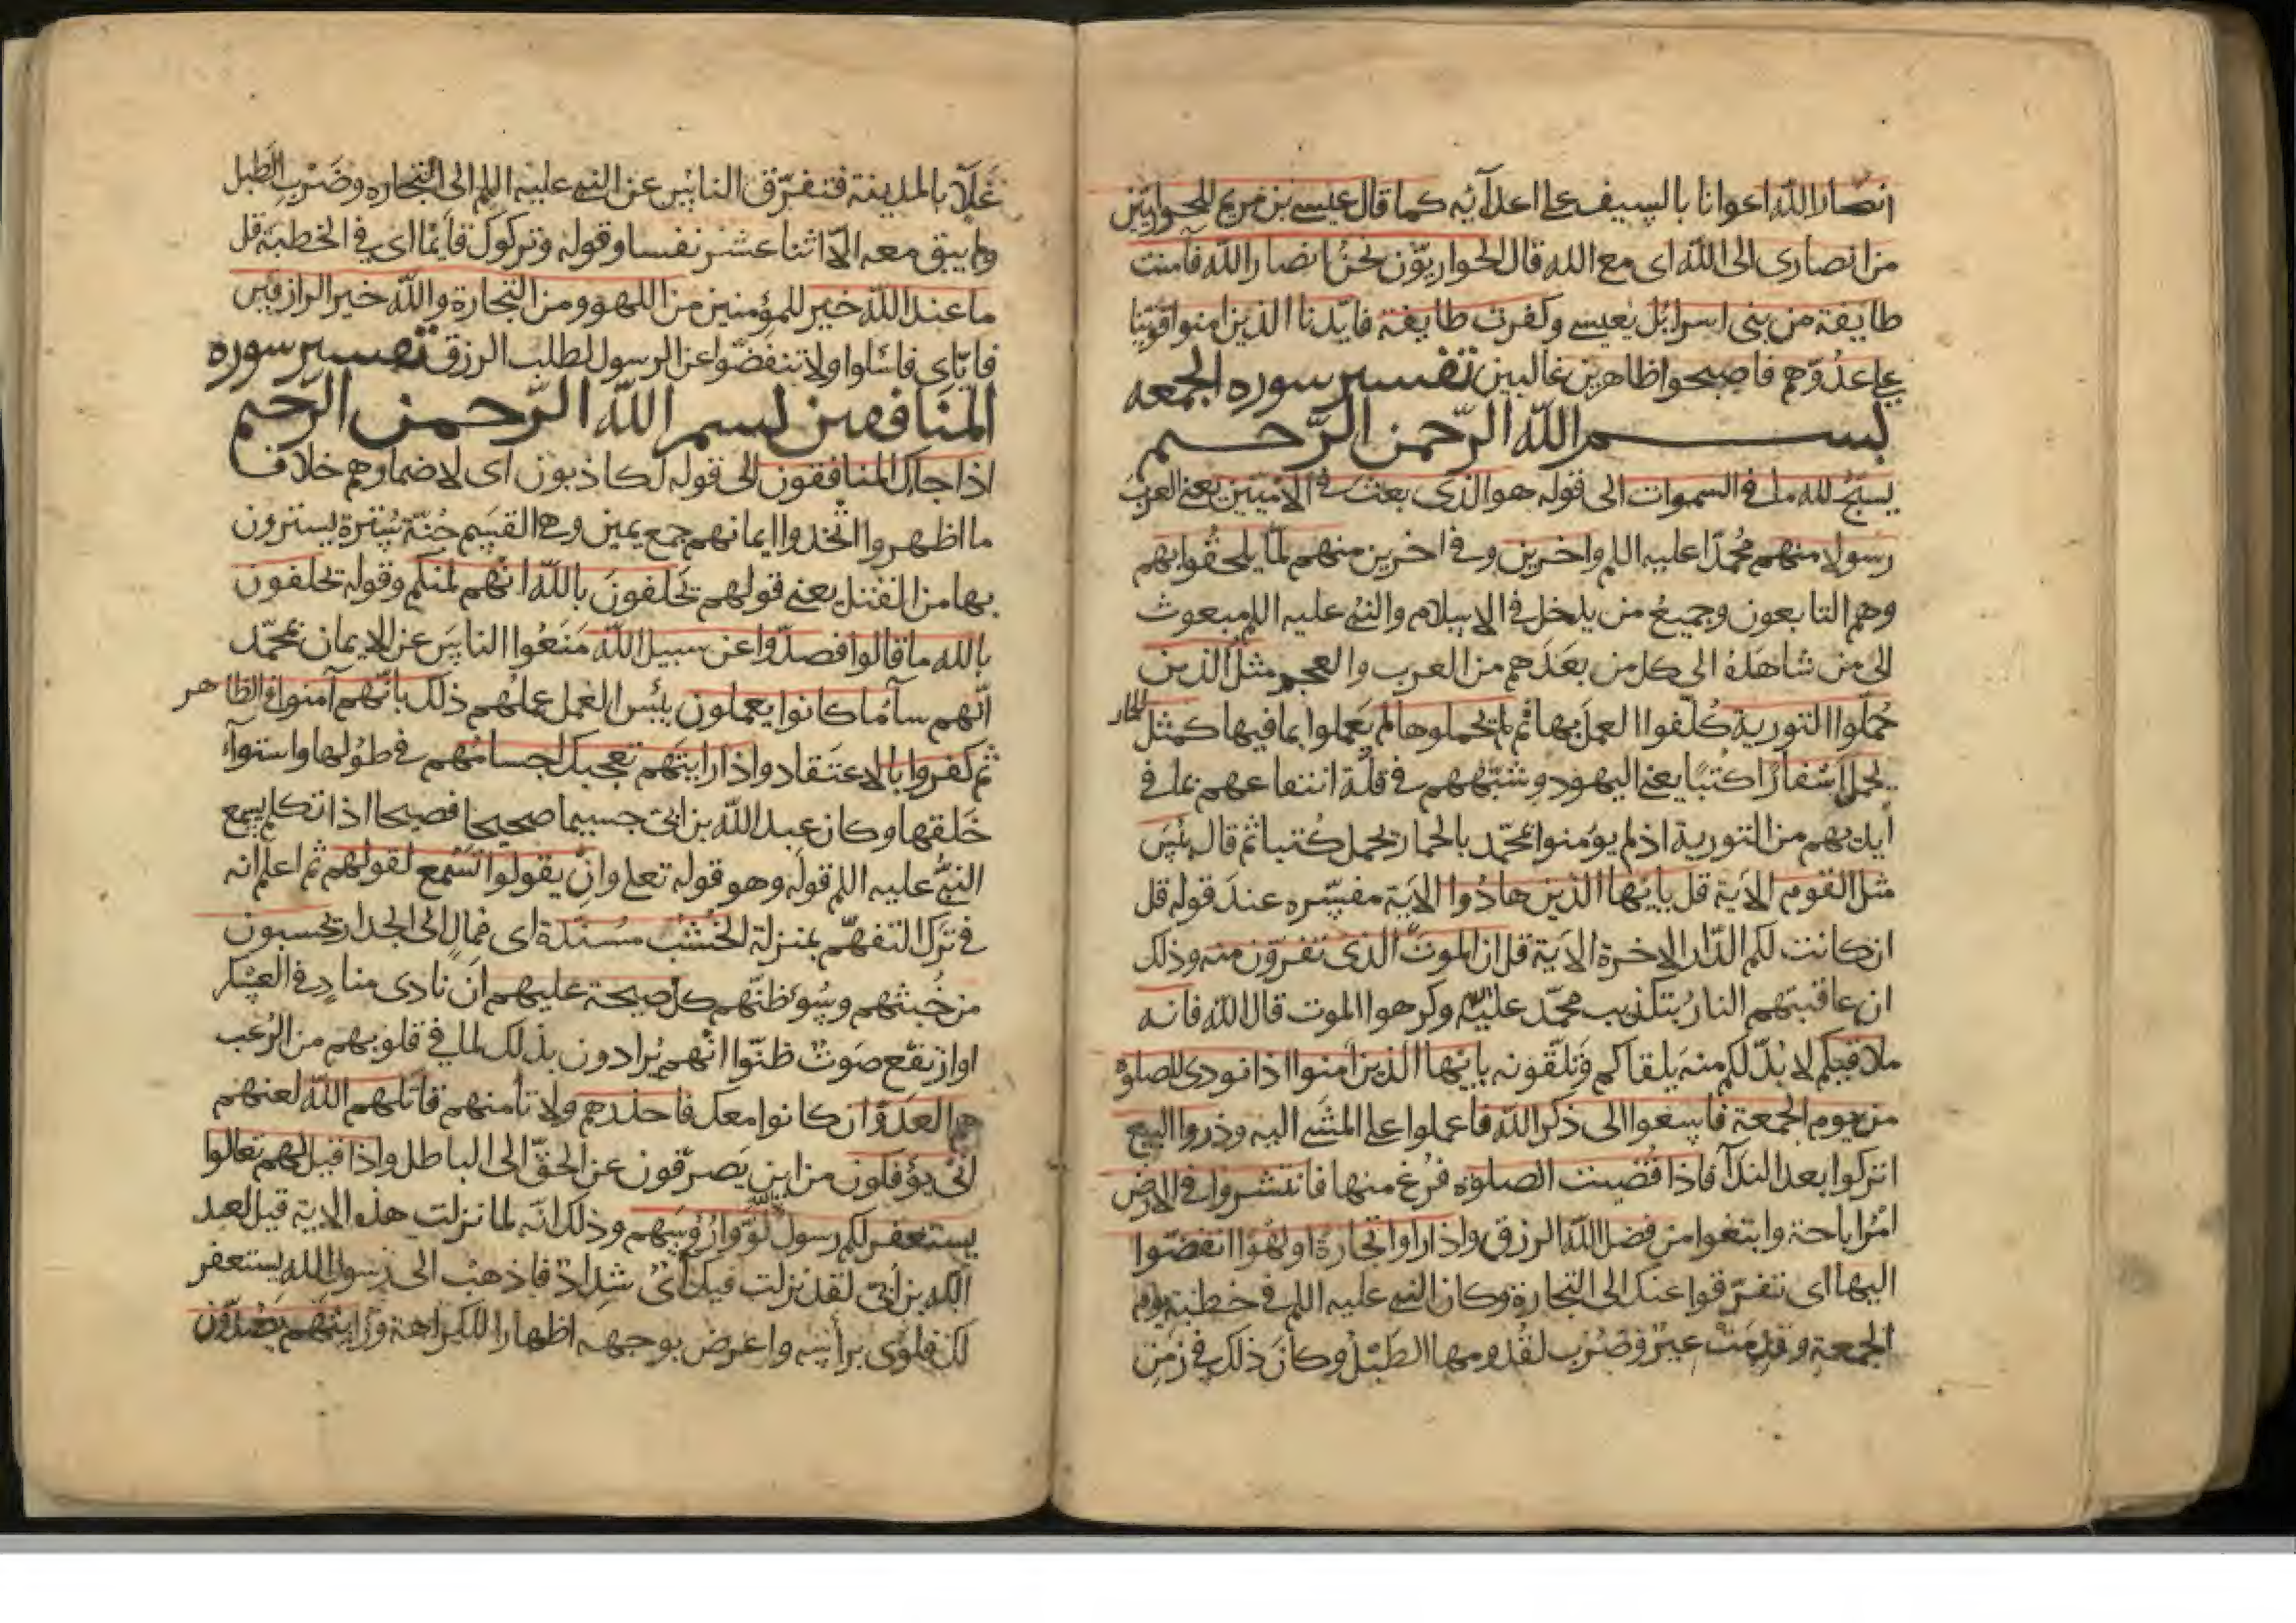 انصار الله اعوانا بالسيف على اعدآئه كما قال عيسى بن مريم للحواريّين
من انصارى الى الله اى مع الله قال الحواريّون نحن انصار الله فآمنت
طايفة من بنى اسرائل بعيسى وكفرت طايفة فايّدنا الذين امنوا قوّينا
على عدُوّهم فاصبحوا ظاهرين غالبين تفسير سوره الجمعه
بسم الله الرّحمن الرّحيم
يسبّح لله ما فى السموات الى قوله هو الذى بعث فى الامّيّين يعنى العرب
رسولا منهم مُحمّدًا عليه اللم واخرين وفى اخرين منهم لمّا يلحقُوا بهم
وهم التابعون وجميعُ من يدخل فى الاسلام والنبىُّ عليه اللم مبعوث
الى من شاهَدَهُ الى كل من بعدَهم من العرب والعجم مثل الذين
حُمّلوا التورية كُلّفوا العملَ بها ثم لم يحملوها لم يَعملوا بما فيها كمثل الحمار
يحمل اسْفارًا كتُبًا يعنى اليهود وشبّههم فى قلّة انتفاعهم بما فى
أيديهم من التورية اذ لم يؤمنوا بمحمّد بالحمار يحمل كُتبا ثم قال بئس
مثل القوم الاية قل يايّها الذين هادُوا الاية مفسّره عند قوله قل
ان كانت لكم الدّار الاخرة الاية قل ان الموتَ الذى تفرّون منه وذلك
ان عاقبتهم النارُ بتكذيب محمّد عليه اللم وكرهوا الموت قال الله فانه
ملاقيكم لا بُدّ لكم منه يلقاكم وتلقونه يايّها الذين امنوا اذا نودى للصلوة
من يوم الجمعة فاسعوا الى ذكر الله فاعملوا على المشى اليه وذروا البيع
اتركوا بعد الندآ فاذا قُضيت الصلوة فُرُغ منها فانتشروا فى الارض
امْرُ اباحة وابتغوا من فضل الله الرزق واذا راوا تجارةً او لَهْوًا انفضّوا
اليها اى تفرّقوا عنك الى التجارة وكان النبى عليه اللم فى خطبة يوم
الجمعة وقدمَتْ عيرٌ وضُرِب لقُدومها الطبْلُ وكان ذلك فى زَمَن
غَلآءٍ بالمدينة فتفرّق الناس عن النبى عليه اللم الى التجاره وضَرْبِ الطبل
ولم يبق معه الّا اثنا عشر نفسا وقوله وتركوك قآئمًا اى فى الخطبة قل
ما عند الله خير للمؤمنين من اللهو ومن التجارة والله خير الرازقين
فايّاى فاسئلوا ولا تنفضّوا عن الرسول لطلب الرزق تفسير سوره
المنافقين بسم الله الرّحمن الرّحيم
اذا جآءك المنافقون الى قوله لكاذبون اى لاضمارهم خلاف
ما اظهروا اتّخذوا ايمانهم جمع يمين وهى القسَم جُنّة سُترة يستترون
بها من القتل يعنى قولهم يحَلفونَ بالله انّهم لمنكم وقوله يحلفون
بالله ما قالوا فصدّوا عن سبيل الله مَنَعُوا الناسَ عن الايمان بمحمّد
انّهم سآء ما كانوا يعملون بئس العَمل عملهم ذلك بانّهم آمنوا فى الظاهر
ثم كفروا بالاعتقاد واذا رايتَهم تعجبك اجسامُهم فى طُولها واستوآء
خَلقها وكان عبد الله بن ابىّ جسيما صحيحا فصيحا اذا تكلم يسمع
النبىُّ عليه اللم قولَه وهو قوله تعلى وانْ يقولوا تَسْمع لقولهم ثم اعلم انه
فى ترك التفهّم بمنزلة الخُشُب مُسَنّدة اى مُمال الى الجدار يحسبون
من خُبثهم وسُوء ظنّهم كلّ صيحة عليهم ان نادى منادٍ فى العسكر
او ارتفع صَوتٌ ظنّوا انّهم يُرادون بذلك لما فى قلوبهم من الرُعب
هم العدَوّ وان كانوا معك فاحذرهم ولا تأمنهم قاتلهم الله لعنهم
انّى يؤفكون من اين يَصرفون عن الحقّ الى الباطل واذا قيل لهم تعالوا
يستغفر لكم رسول الله لوّوا رُؤسَهم وذلك انّه لمّا نزلت هذه الاية قيل لعبد
الله بن اُبىّ لقد نزلت فيك آىٌ شداد فاذهب الى رسول الله يستغفر
لك فلوى برأسه واعرض بوجهه اظهارًا للكراهة ورايتَهم يصدّون